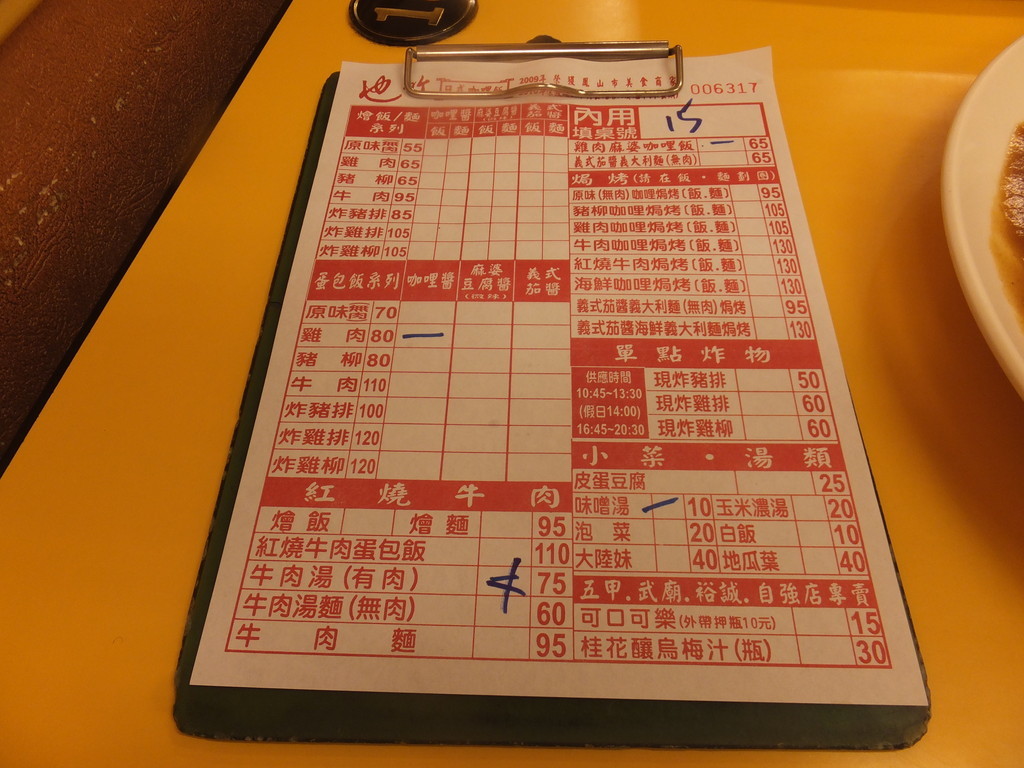 1
2009年 榮獲鳳山市美食商家
006317
燴飯/麵系列 咖哩醬 麻婆豆腐醬 義式茄醬
飯 麵 飯 麵 飯 麵
原味(無肉) 55
雞肉 65
豬柳 65
牛肉 95
炸豬排 85
炸雞排 105
炸雞柳 105
蛋包飯系列 咖哩醬 麻婆豆腐醬(微辣) 義式茄醬
原味(無肉) 70
雞肉 80 一
豬柳 80
牛肉 110
炸豬排 100
炸雞排 120
炸雞柳 120
紅燒牛肉
燴飯 燴麵 95
紅燒牛肉蛋包飯 110
牛肉湯(有肉) 75
牛肉湯麵(無肉) 60
牛肉麵 95
內用填桌號 15
雞肉麻婆咖哩飯 一 65
義式茄醬義大利麵(無肉) 65
焗烤(請在飯.麵劃圈)
原味(無肉)咖哩焗烤(飯.麵) 95
豬柳咖哩焗烤(飯.麵) 105
雞肉咖哩焗烤(飯.麵) 105
牛肉咖哩焗烤(飯.麵) 130
紅燒牛肉焗烤(飯.麵) 130
海鮮咖哩焗烤(飯.麵) 130
義式茄醬義大利麵(無肉)焗烤 95
義式茄醬海鮮義大利麵焗烤 130
單點炸物
供應時間
10:45~13:30
(假日14:00)
16:45~20:30
現炸豬排 50
現炸雞排 60
現炸雞柳 60
小菜.湯類
皮蛋豆腐 25
味噌湯 一 10 玉米濃湯 20
泡菜 20 白飯 10
大陸妹 40 地瓜葉 40
五甲.武廟.裕誠.自強店專賣
可口可樂(外帶押瓶10元) 15
桂花釀烏梅汁(瓶) 30